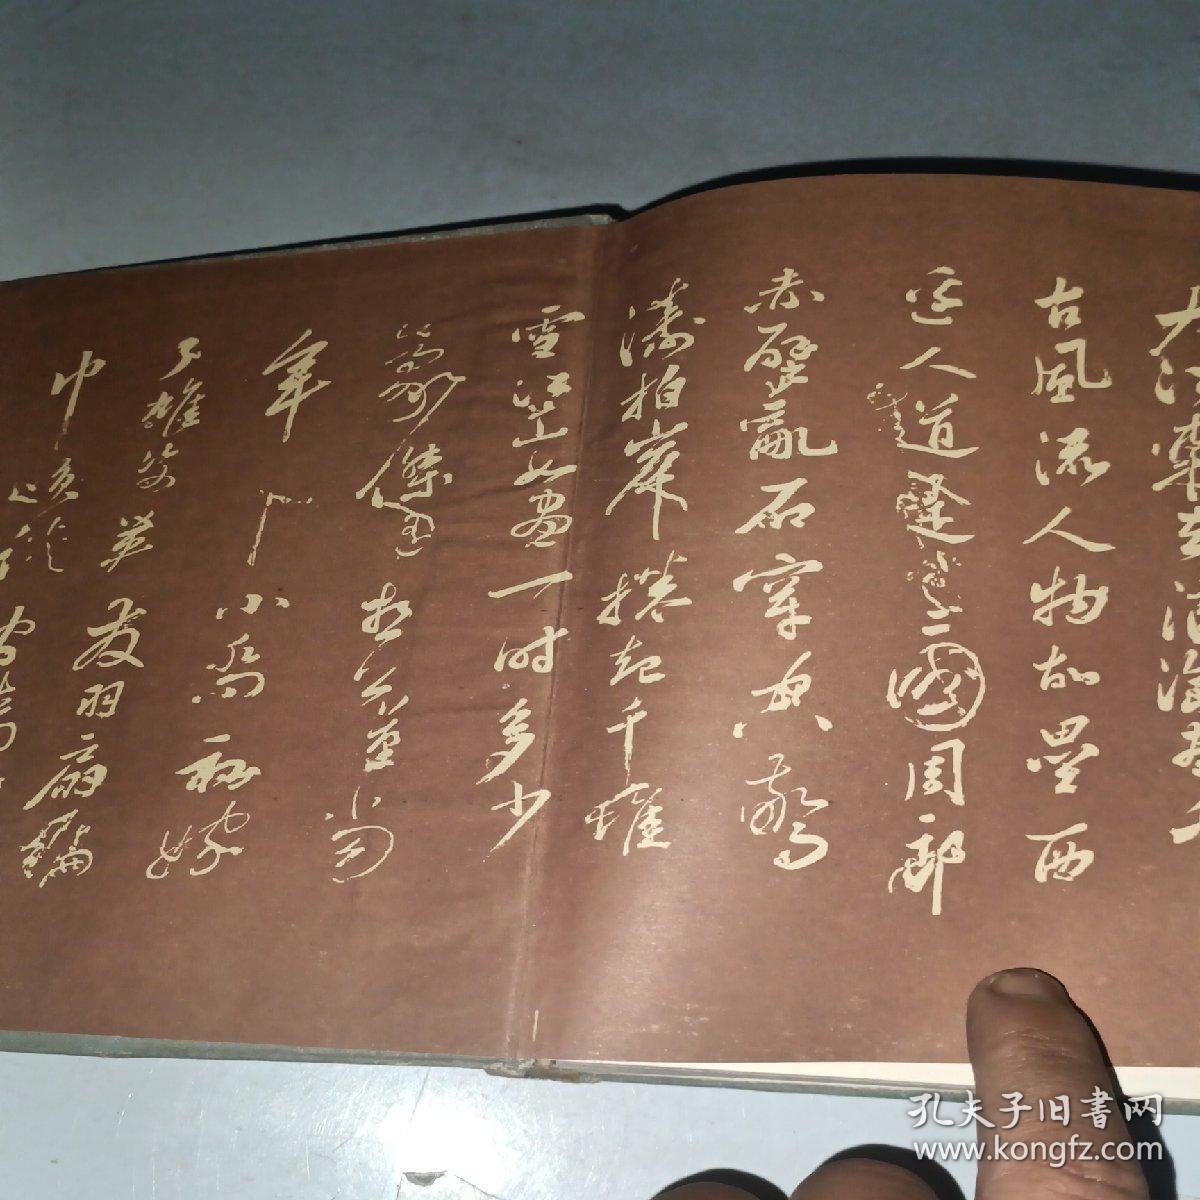 大江東去浪淘盡千
古風流人物故壘西
邊人道是三國周郎
赤壁亂石穿空驚
濤拍岸捲起千堆
雪江山如畫一時多少
豪傑遥想公瑾當
年小喬初嫁
了雄姿英發羽扇綸
巾談
孔夫子旧書网
www.kongfz.com